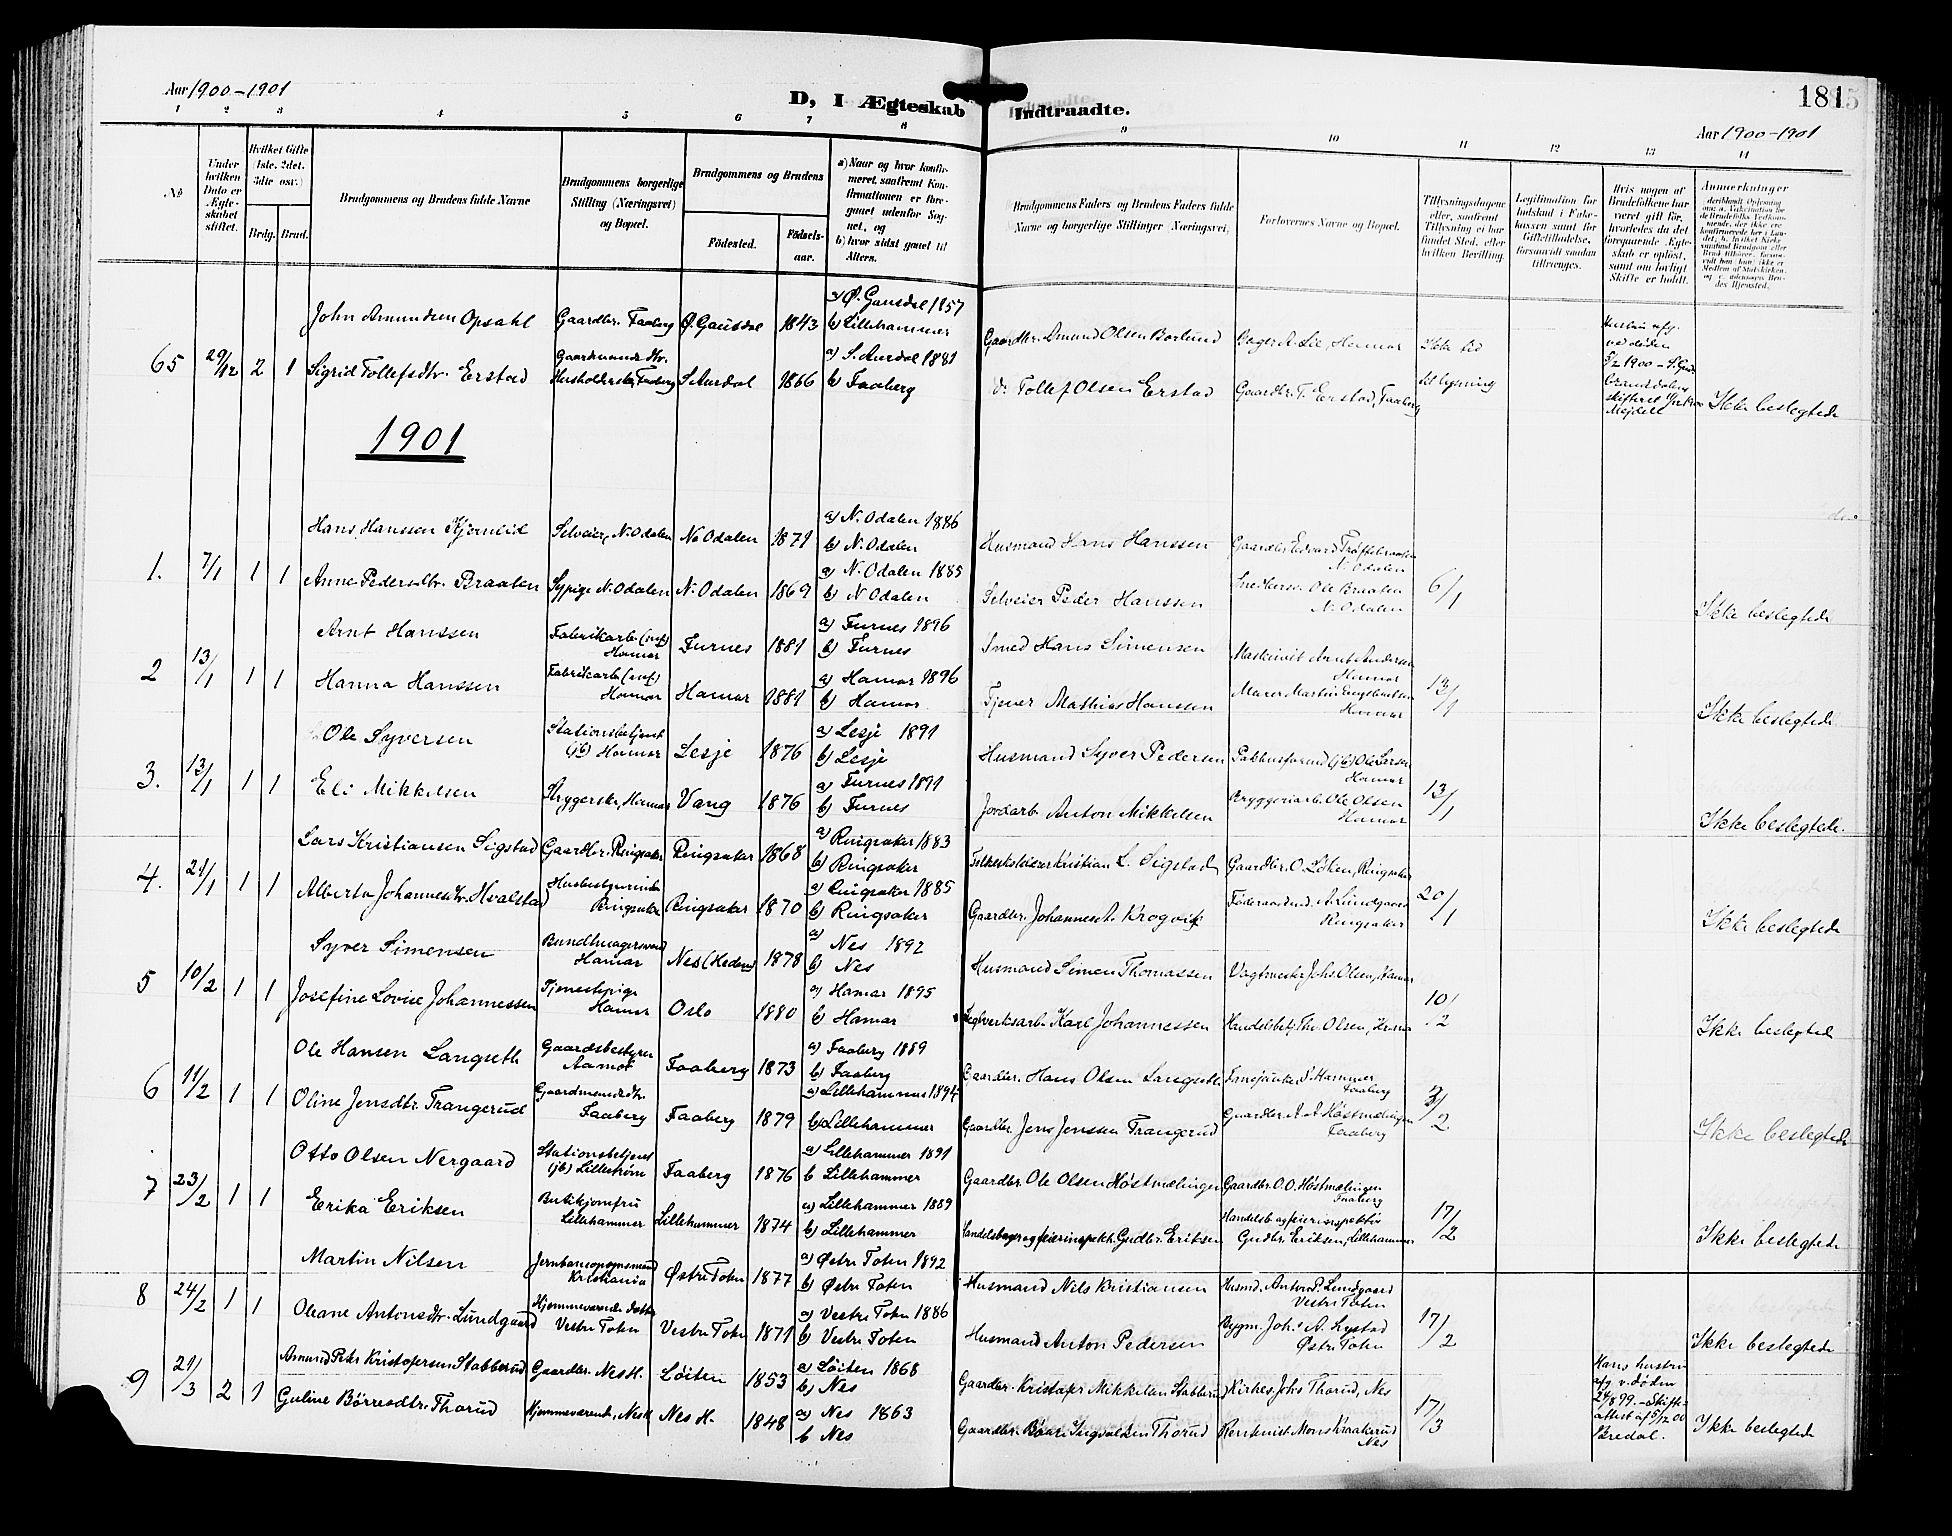 Aar 1900-1901
D, I Ægteskab Indtraadte.
181
Aar 1900-1901
1 2 3 4 5 6 7 8 9 10 11 12 13 14
No
Under hvilken Dato er Ægteskabet stiftet.
Hvilket Gifte (1ste, 2det, 3die osv.)
Brdg. Brud.
Brudgommens og Brudens fulde Navne
Brudgommens borgerlige Stilling (Næringsvei) og Bopæl.
Brudgommens og Brudens
Födested.
Födselsaar.
a) Naar og hvor konfirmeret, saafremt Konfirmationen er foregaaet udenfor Sognet, og
b) hvor sidst gaaet til Alters.
Brudgommens Faders og Brudens Faders fulde Navne og borgerlige Stillinger (Næringsvei)
Forlovernes Navne og Bopæl.
Tillysningsdagene eller, saafremt Tillysning ei har fundet Sted, efter hvilken Bevilling.
Legitimation for Indskud i Enkekassen samt for Giftetilladelse, forsaavidt saadan tiltrænges.
Hvis nogen af Brudefolkene har været gift før, hvorledes da det foregaaende Ægteskab er opløst, samt om lovligt Skifte er holdt.
Anmerkninger
65 29/12 2 1
John Amundsen Opsahl Gaardbr. Faaberg Ø. Gausdal 1843 a) Ø. Gausdal 1857 b) Lillehammer Gaardbr. Amund Olsen Borlund Bager A. Lie, Hamar Ikke tid
Sigrid Tollefsdtr. Erstad Gaardmandsdtr. Husholderske Faaberg S. Aurdal 1866 a) S. Aurdal 1881 b) Faaberg do Tollef Olsen Erstad Gaardbr. T. Erstad, Faaberg til lysning
Hustru afg. ved døden 5/2 1900
Ikke beslegtede
1901
1. 7/1 1 1
Hans Hanssen Selveier, N. Odalen N. Odalen 1871 a) N. Odalen 1886 b) N. Odalen Husmand Hans Hanssen Gaardbr. Edvard N. Odalen
Anne Pedersdtr. Braaten Sypige N. Odalen N. Odalen 1869 a) N. Odalen 1885 b) N. Odalen Selveier Peder Hanssen Snedkersv. Ole Braaten N. Odalen 6/1 Ikke beslegtede
2 13/1 1 1
Arnt Hanssen Fabrikarb. Hamar Furnes 1881 a) Furnes 1896 b) Furnes Smed Hans Simensen Maskinist Arnt Andersen Hamar
Hanna Hanssen Fabrikarb. Hamar Hamar 1881 a) Hamar 1896 b) Hamar Tjener Mathias Hanssen Murer Martin Engebretsen Hamar 13/1 Ikke beslegtede
3. 13/1 1 1
Ole Syversen Stationsbetjent (jb) Hamar Lesje 1876 a) Lesje 1891 b) Lesje Husmand Syver Pedersen Pakhusformand (jb) Ole Larsen Hamar
Eli Mikkelsen Strygerske, Hamar Vang 1876 a) Furnes 1891 b) Furnes Jordarb. Anton Mikkelsen Bryggeriarb. Ole Olsen Hamar 13/1 Ikke beslegtede
4. 21/1 1 1
Lars Kristiansen Sigstad Gaardbr. Ringsaker Ringsaker 1868 a) Ringsaker 1883 b) Ringsaker Kristian L. Sigstad Gaardbr. O. Løken, Ringsaker
Alberta Johannesdtr. Hvalstad Husbestyrerinde Ringsaker Ringsaker 1870 a) Ringsaker 1885 b) Ringsaker Gaardbr. Johannes A. Krogvik Føderaadsmd. A. Lundgaard Ringsaker 20/1 Ikke beslegtede
5 10/2 1 1
Syver Simensen Bundtmagersvend Hamar Nes (Hedem) 1878 a) Nes 1892 b) Nes Husmand Simen Thomassen Vagtmester Johs. Olsen, Hamar
Josefine Lovise Johannessen Tjenestepige Hamar Oslo 1880 a) Hamar 1895 b) Hamar Teglverksarb. Karl Johannessen Handelsbetj. Th. Olsen, Hamar 10/2 Ikke beslegtede
6 11/2 1 1
Ole Hansen Langseth Gaardsbestyrer Aamot Faaberg 1873 a) Faaberg 1889 b) Faaberg Gaardbr. Hans Olsen Langseth Fanejunker P. Hammer Faaberg
Oline Jensdtr. Trangerud Gaardmandsdtr. Faaberg Faaberg 1879 a) Lillehammer 1894 b) Lillehammer Gaardbr. Jens Jenssen Trangerud Gaardbr. A. A. Høstmælingen Faaberg 3/2 Ikke beslegtede
7 23/2 1 1
Otto Olsen Nergaard Stationsbetjent (jb) Lillestrøm Faaberg 1876 a) Lillehammer 1891 b Lillehammer Gaardbr. Ole Olsen Høstmælingen Gaardbr. O. O. Høstmælingen Faaberg
Erika Eriksen Butikjomfru Lillehammer Lillehammer 1874 a) Lillehammer 1889 b) Lillehammer Handelsborger og feierinspekt. Gudbr. Eriksen Handelsb. og feierinspektør Gudbr. Eriksen, Lillehammer 17/2 Ikke beslegtede
8 24/2 1 1
Martin Nilsen Jernbaneopsynsmand Kristiania Østre Toten 1877 a) Østre Toten 1892 b) Østre Toten Husmand Nils Kristiansen Husmd. Anton P. Lundgaard Vestre Toten
Oleane Antonsdtr. Lundgaard Hjemmeværende datter Vestre Toten Vestre Toten 1871 a) Vestre Toten 1886 b) Vestre Toten Husmand Anton Pedersen Bygm. Johs. A. Lystad Østre Toten 17/2 Ikke beslegtede
9 21/3 2 1
Amund Peter Kristofersen Stabberud Gaardbr. Nes H. Løiten 1853 a) Løiten 1868 b) Nes Gaardbr. Kristofer Mikkelsen Stabberud Kirkes. Johs Thorud, Nes
Guline Børresdtr. Thorud Hjemmeværende, Nes H. Nes H. 1848 a) Nes 1863 b Nes Gaardbr. Børre Ingvoldsen Thorud Rentenist Mons Kraakerud Nes 17/3
Hans hustru afg. v. døden 24/8 99. - Skifteattest af 5/12 00 Bredal.
Ikke beslegtede